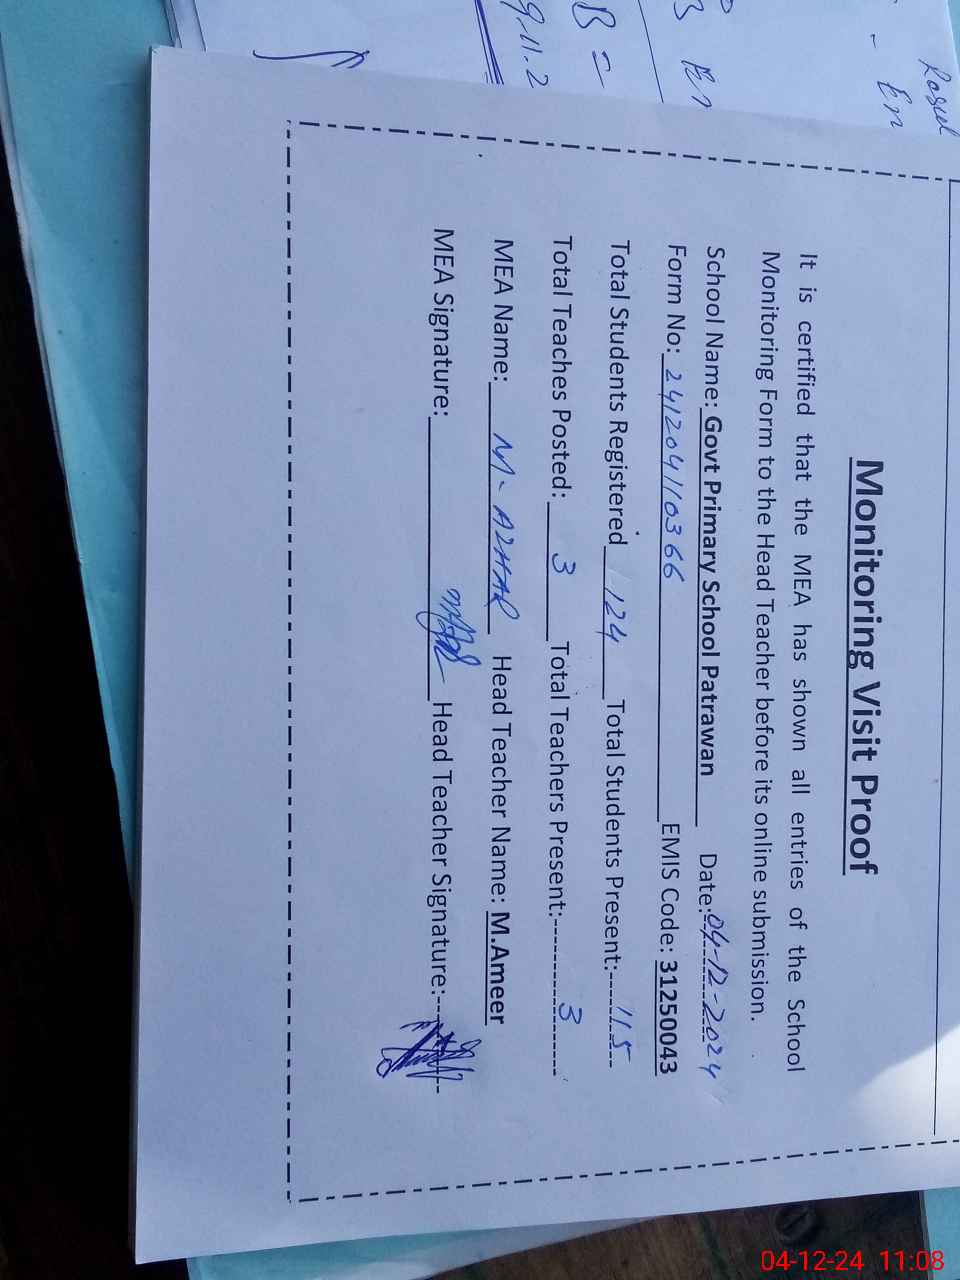 Monitoring Visit Proof
It is certified that the MEA has shown all entries of the School
Monitoring Form to the Head Teacher before its online submission.
School Name: Govt Primary School Patrawan Date: 04-12-2024
Form No: 241204110366 EMIS Code: 31250043
Total Students Registered 124 Total Students Present:---115--
Total Teaches Posted: 3 Total Teachers Present:- 3
MEA Name: M. AZHAR Head Teacher Name: M.Ameer
MEA Signature: Head Teacher Signature:
Rasul
En
B =
9.11.2
04-12-24 11:08